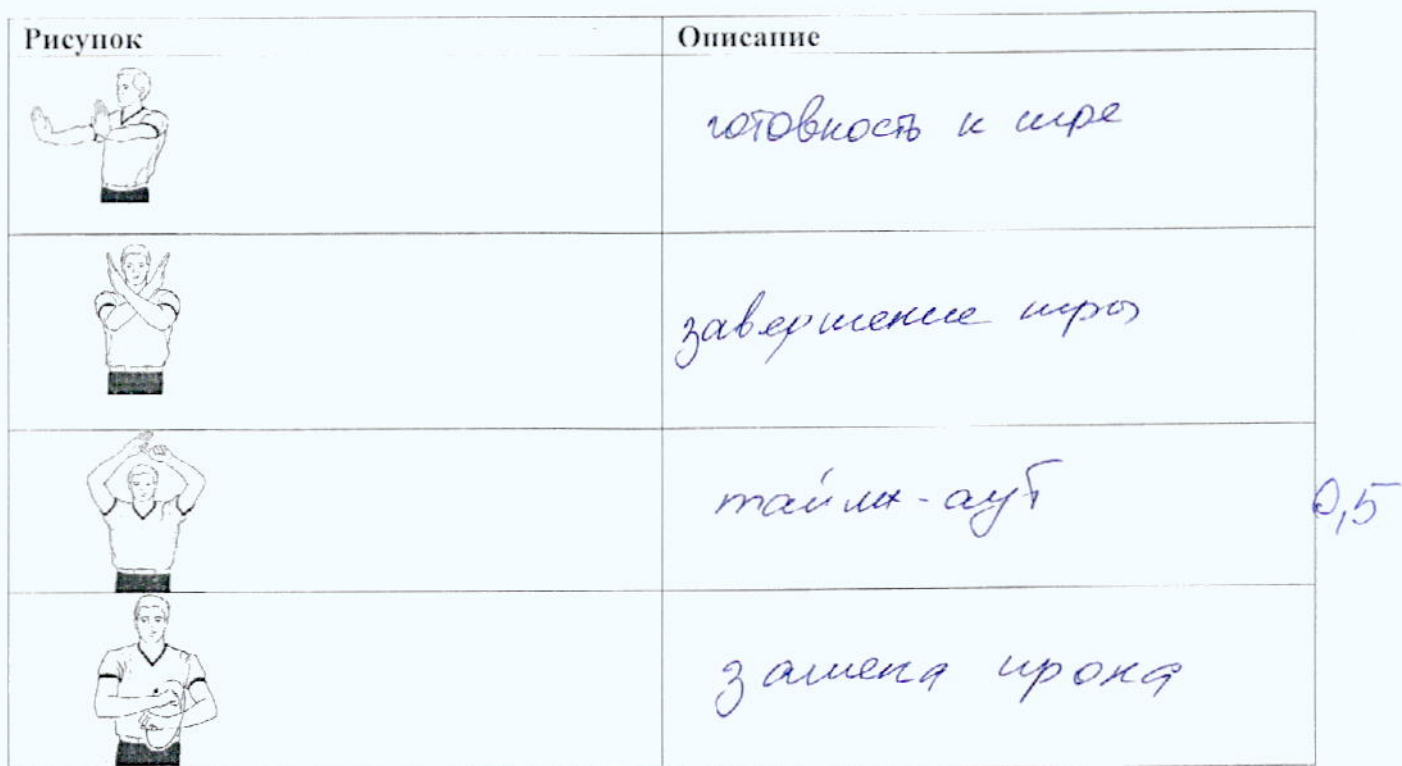 Рисунок
Описание
готовность к игре
завершение игры
тайм-аут
0,5
замена игрока